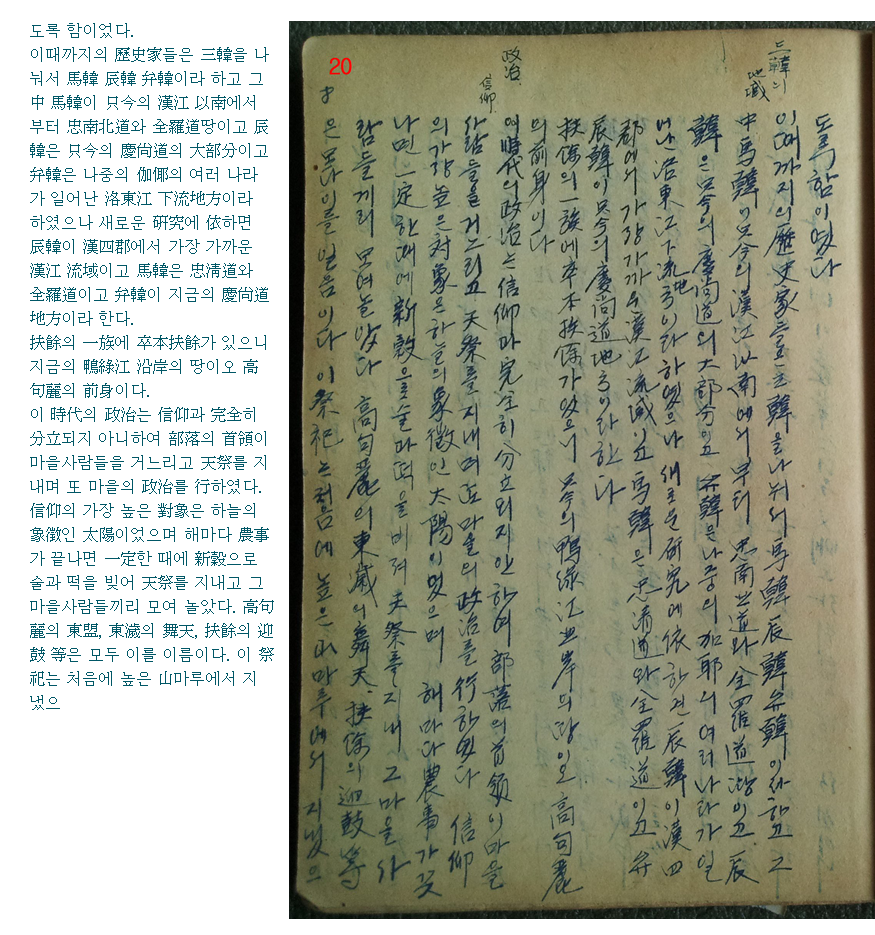 도록 함이었다.
이때까지의 歷史家들은 三韓을 나
눠서 馬韓 辰韓 弁韓이라 하고 그
中 馬韓이 只今의 漢江 以南에서
부터 忠南北道와 全羅道땅이고 辰
韓은 只今의 慶尙道의 大部分이고
弁韓은 나중의 伽倻의 여러 나라
가 일어난 洛東江 下流地方이라
하였으나 새로운 硏究에 依하면
辰韓이 漢四郡에서 가장 가까운
漢江 流域이고 馬韓은 忠淸道와
全羅道이고 弁韓이 지금의 慶尙道
地方이라 한다.
扶餘의 一族에 卒本扶餘가 있으니
지금의 鴨綠江 沿岸의 땅이오 高
句麗의 前身이다.
이 時代의 政治는 信仰과 完全히
分立되지 아니하여 部落의 首領이
마을사람들을 거느리고 天祭를 지
내며 또 마을의 政治를 行하였다.
信仰의 가장 높은 對象은 하늘의
象徵인 太陽이었으며 해마다 農事
가 끝나면 一定한 때에 新穀으로
술과 떡을 빚어 天祭를 지내고 그
마을사람들끼리 모여 놀았다. 高句
麗의 東盟, 東濊의 舞天, 扶餘의 迎
鼓 等은 모두 이를 이름이다. 이 祭
祀는 처음에 높은 山마루에서 지
냈으
20
三韓의
地域
政治
信仰
도록 함이었다
이때까지의 歷史家들은 三韓을 나눠서 馬韓 辰韓 弁韓이라 하고 그
中 馬韓이 只今의 漢江 以南에서 부터 忠南北道와 全羅道땅이고 辰
韓은 只今의 慶尙道의 大部分이고 弁韓은 나중의 加耶의 여러나라가 일
어난 洛東江下流地方이라 하였으나 새로운 研究에 依하면 辰韓이 漢四
郡에서 가장 가까운 漢江 流域이고 馬韓은 忠淸道와 全羅道이고 弁
辰韓이 只今의 慶尙道地方이라 한다
扶餘의 一族에 卒本扶餘가 있으니 只今의 鴨綠江 岸의 땅이오 高句麗
의 前身이다
이 時代의 政治는 信仰과 完全히 分立되지 안하여 部落의 首領이 마을
사람들을 거느리고 天祭를 지내며 또 마을의 政治를 行하였다 信仰
의 가장 높은 対象은 하늘의 象徵인 太陽이었으며 해마다 農事가 끗
나면 一定한 때에 新穀으로 술과 떡을 비저 天祭를 지내고 그 마을 사
람들끼리 모여 놀았다 高句麗의 東濊의 舞天, 扶餘의 迎鼓 等
은 모다 이를 일음이다 이 祭祀는 처음에 높은 山마루에서 지냈으